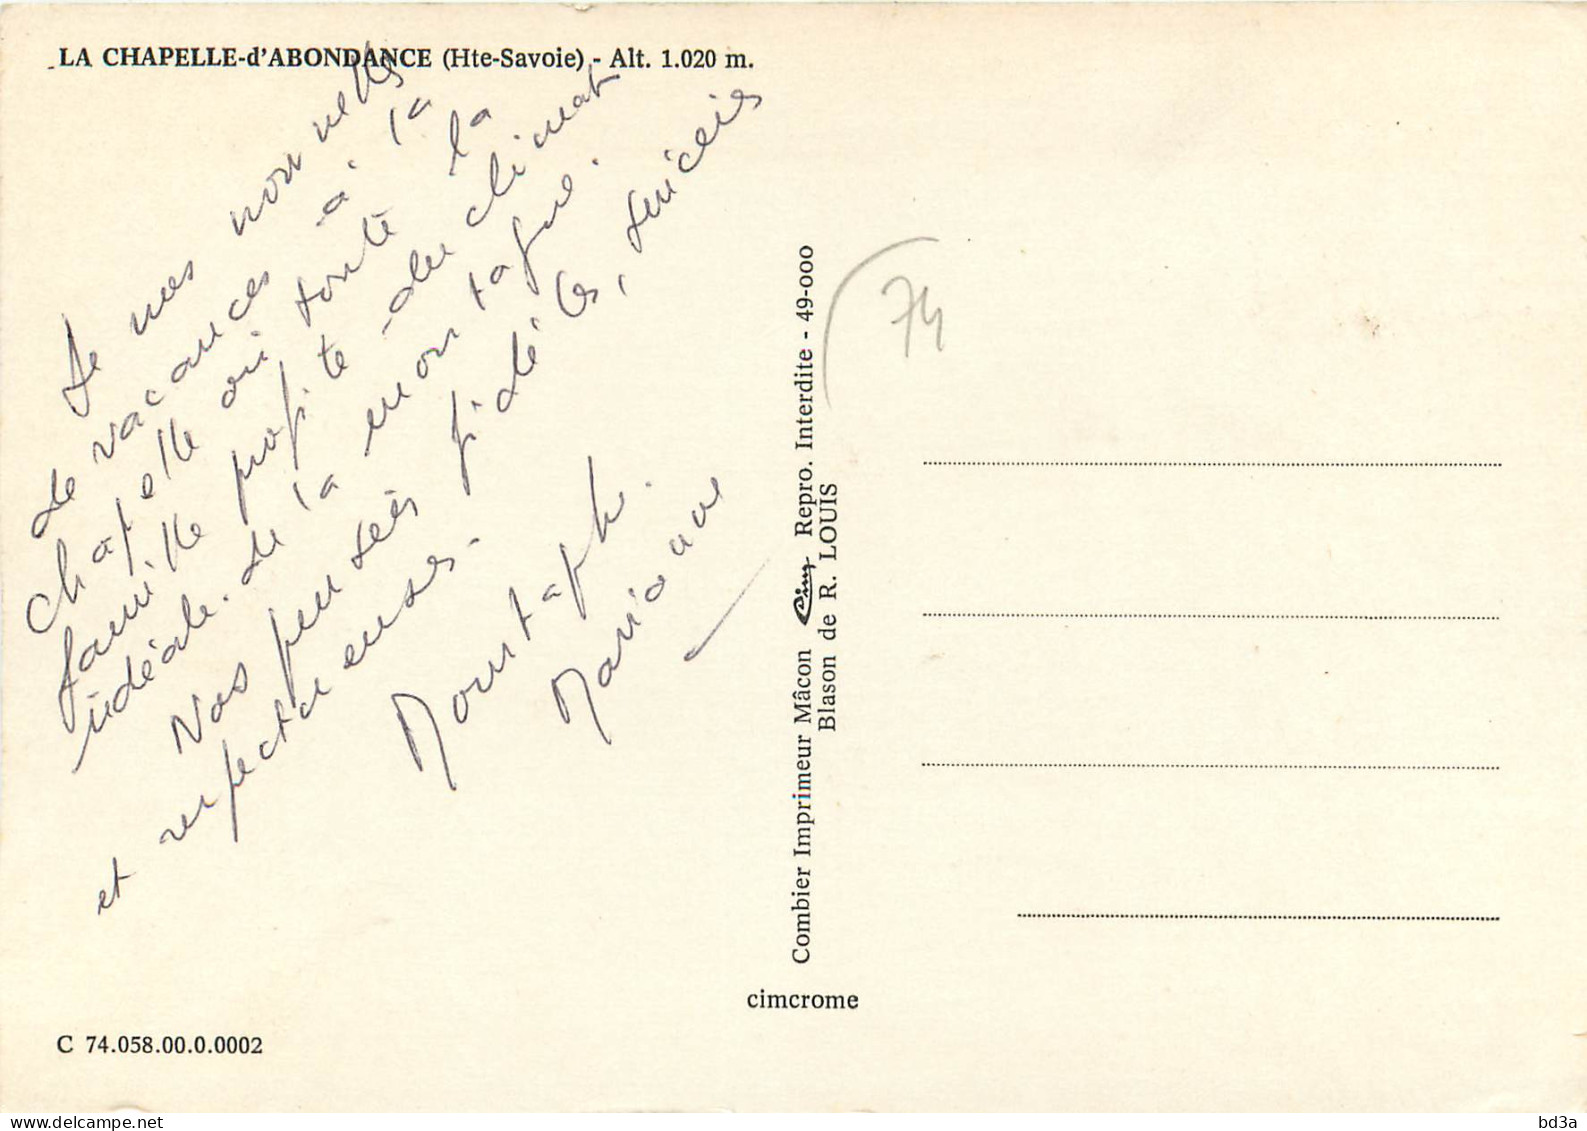 LA CHAPELLE-d'ABONDANCE (Hte-Savoie) - Alt. 1.020 m.
de nos nouvelles
de vacances à la
Chapelle où toute la
famille profite du climat
idéale. de la montagne.
Nos pensées fidèles, sincères
et respectueuses.
Moustapha.
Marianne
74
Combier Imprimeur Mâcon Cim Repro. Interdite - 49-000
Blason de R. LOUIS
cimcrome
C 74.058.00.0.0002
www.delcampe.net
bd3a